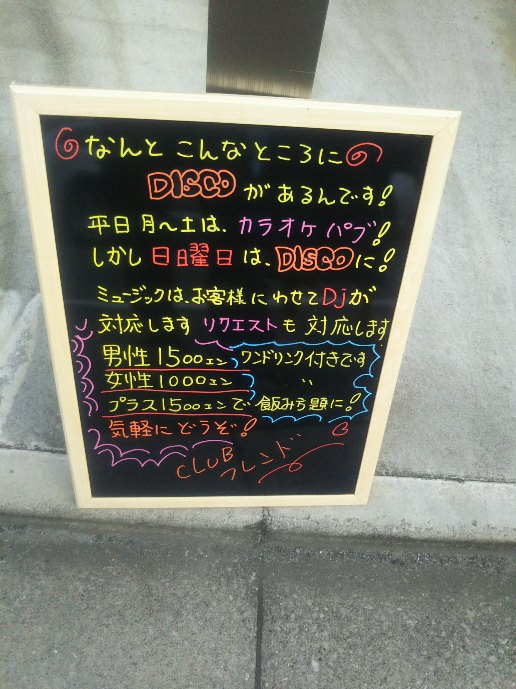 なんと こんなところに
DISCOがあるんです!
平日月~土は、カラオケパブ!
しかし日曜日は、DISCOに!
ミュージックは、お客様にわせてDjが
対応します リクエストも対応します
男性1500エン ワンドリンク付きです
女性1000エン 〃
プラス1500エンで 飲みち題に!
気軽にどうぞ!
CLUB フレンド